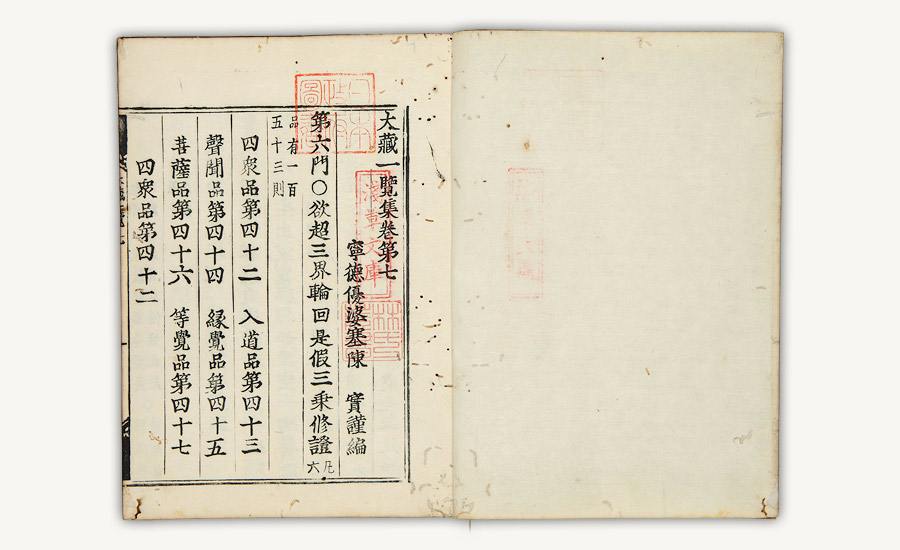 大藏一覽集卷第七
寧德優婆塞陳　實謹編
第六門〇欲超三界輪回是假三乘修證凡六
品有一百
五十三則
四衆品第四十二　入道品第四十三
聲聞品第四十四　緣覺品第四十五
菩薩品第四十六　等覺品第四十七
四衆品第四十二
日本
政府
圖書
淺草文庫